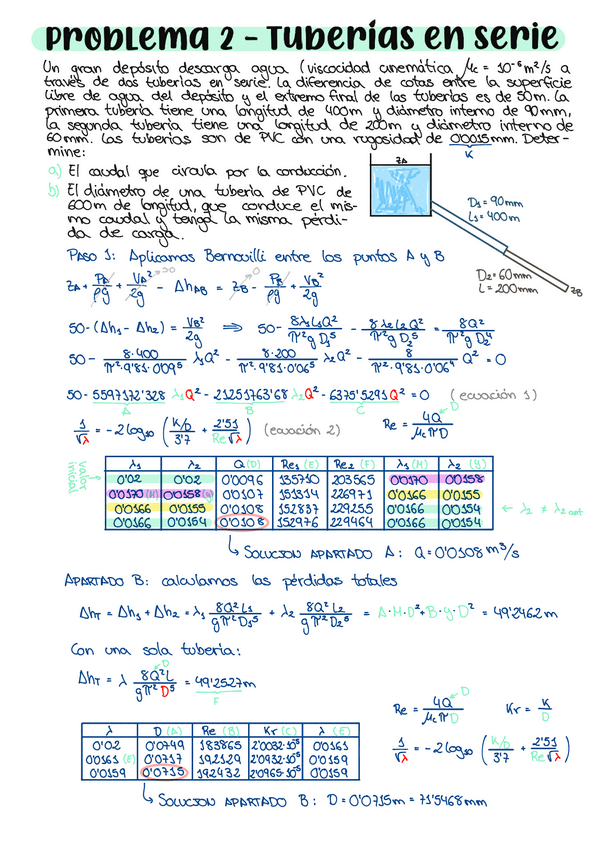 Problema 2 - Tuberías en serie
Un gran depósito descarga agua (viscocidad cinemática μc = 10⁻⁶ m²/s a
través de dos tuberías en serie. La diferencia de cotas entre la superficie
libre de agua del depósito y el extremo final de las tuberías es de 50m. La
primera tubería tiene una longitud de 400m y diámetro interno de 90mm,
la segunda tubería tiene una longitud de 200m y diámetro interno de
60mm. Las tuberías son de PVC con una rugosidad de 0'0015mm. Deter-
mine:
K
a) El caudal que circula por la conducción.
b) El diámetro de una tubería de PVC de
600m de longitud, que conduce el mis-
mo caudal y tenga la misma pérdi-
da de carga.
ZA
D1 = 90mm
L1 = 400m
D2 = 60mm
L = 200mm
ZB
PASO 1: Aplicamos Bernouilli entre los puntos A y B
ZA + PA/ρg + VA²/2g - ΔhAB = ZB - PB/ρg + VB²/2g
50 - (Δh1 - Δh2) = VB²/2g ⇒ 50 - 8λ1L1Q²/π²gD1⁵ - 8λ2L2Q²/π²gD2⁵ = 8Q²/π²gD2⁴
50 - 8·400/π²·9'81·0'09⁵ λ1Q² - 8·200/π²·9'81·0'06⁵ λ2Q² - 8/π²·9'81·0'06⁴ Q² = 0
50 - 5597172'328 λ1Q² - 21251763'68 λ2Q² - 6375'5291 Q² = 0 (ecuación 1)
A B C
1/√λ = -2 log10 (K/D/3'7 + 2'51/Re√λ) (ecuación 2) Re = 4Q/μcπD
D
valor inicial
λ1 λ2 Q (D) Re1 (E) Re2 (F) λ1 (M) λ2 (Y)
0'02 0'02 0'0096 135710 203565 0'0170 0'0158
0'0170 (M) 0'0158 (Y) 0'0107 151314 226971 0'0166 0'0155
0'0166 0'0155 0'0108 152837 229255 0'0166 0'0154
0'0166 0'0154 0'0108 152976 229464 0'0166 0'0154
← λ2 ≠ λ2 ant
↳ SOLUCION APARTADO A: Q = 0'0108 m³/s
APARTADO B: calculamos las pérdidas totales
ΔhT = Δh1 + Δh2 = λ1 8Q²L1/gπ²D1⁵ + λ2 8Q²L2/gπ²D2⁵ = A·M·D² + B·Y·D² = 49'2462m
Con una sola tubería:
ΔhT = λ 8Q²L/gπ²D⁵ = 49'2527m
D
F
Re = 4Q/μcπD Kr = K/D
D
1/√λ = -2 log10 (K/D/3'7 + 2'51/Re√λ)
λ D (A) Re (B) Kr (C) λ (E)
0'02 0'0749 183865 2'0032·10⁻⁵ 0'0161
0'0161 (E) 0'0717 192129 2'0932·10⁻⁵ 0'0159
0'0159 0'0715 192432 2'0965·10⁻⁵ 0'0159
↳ SOLUCION APARTADO B: D = 0'0715m = 71'5468mm